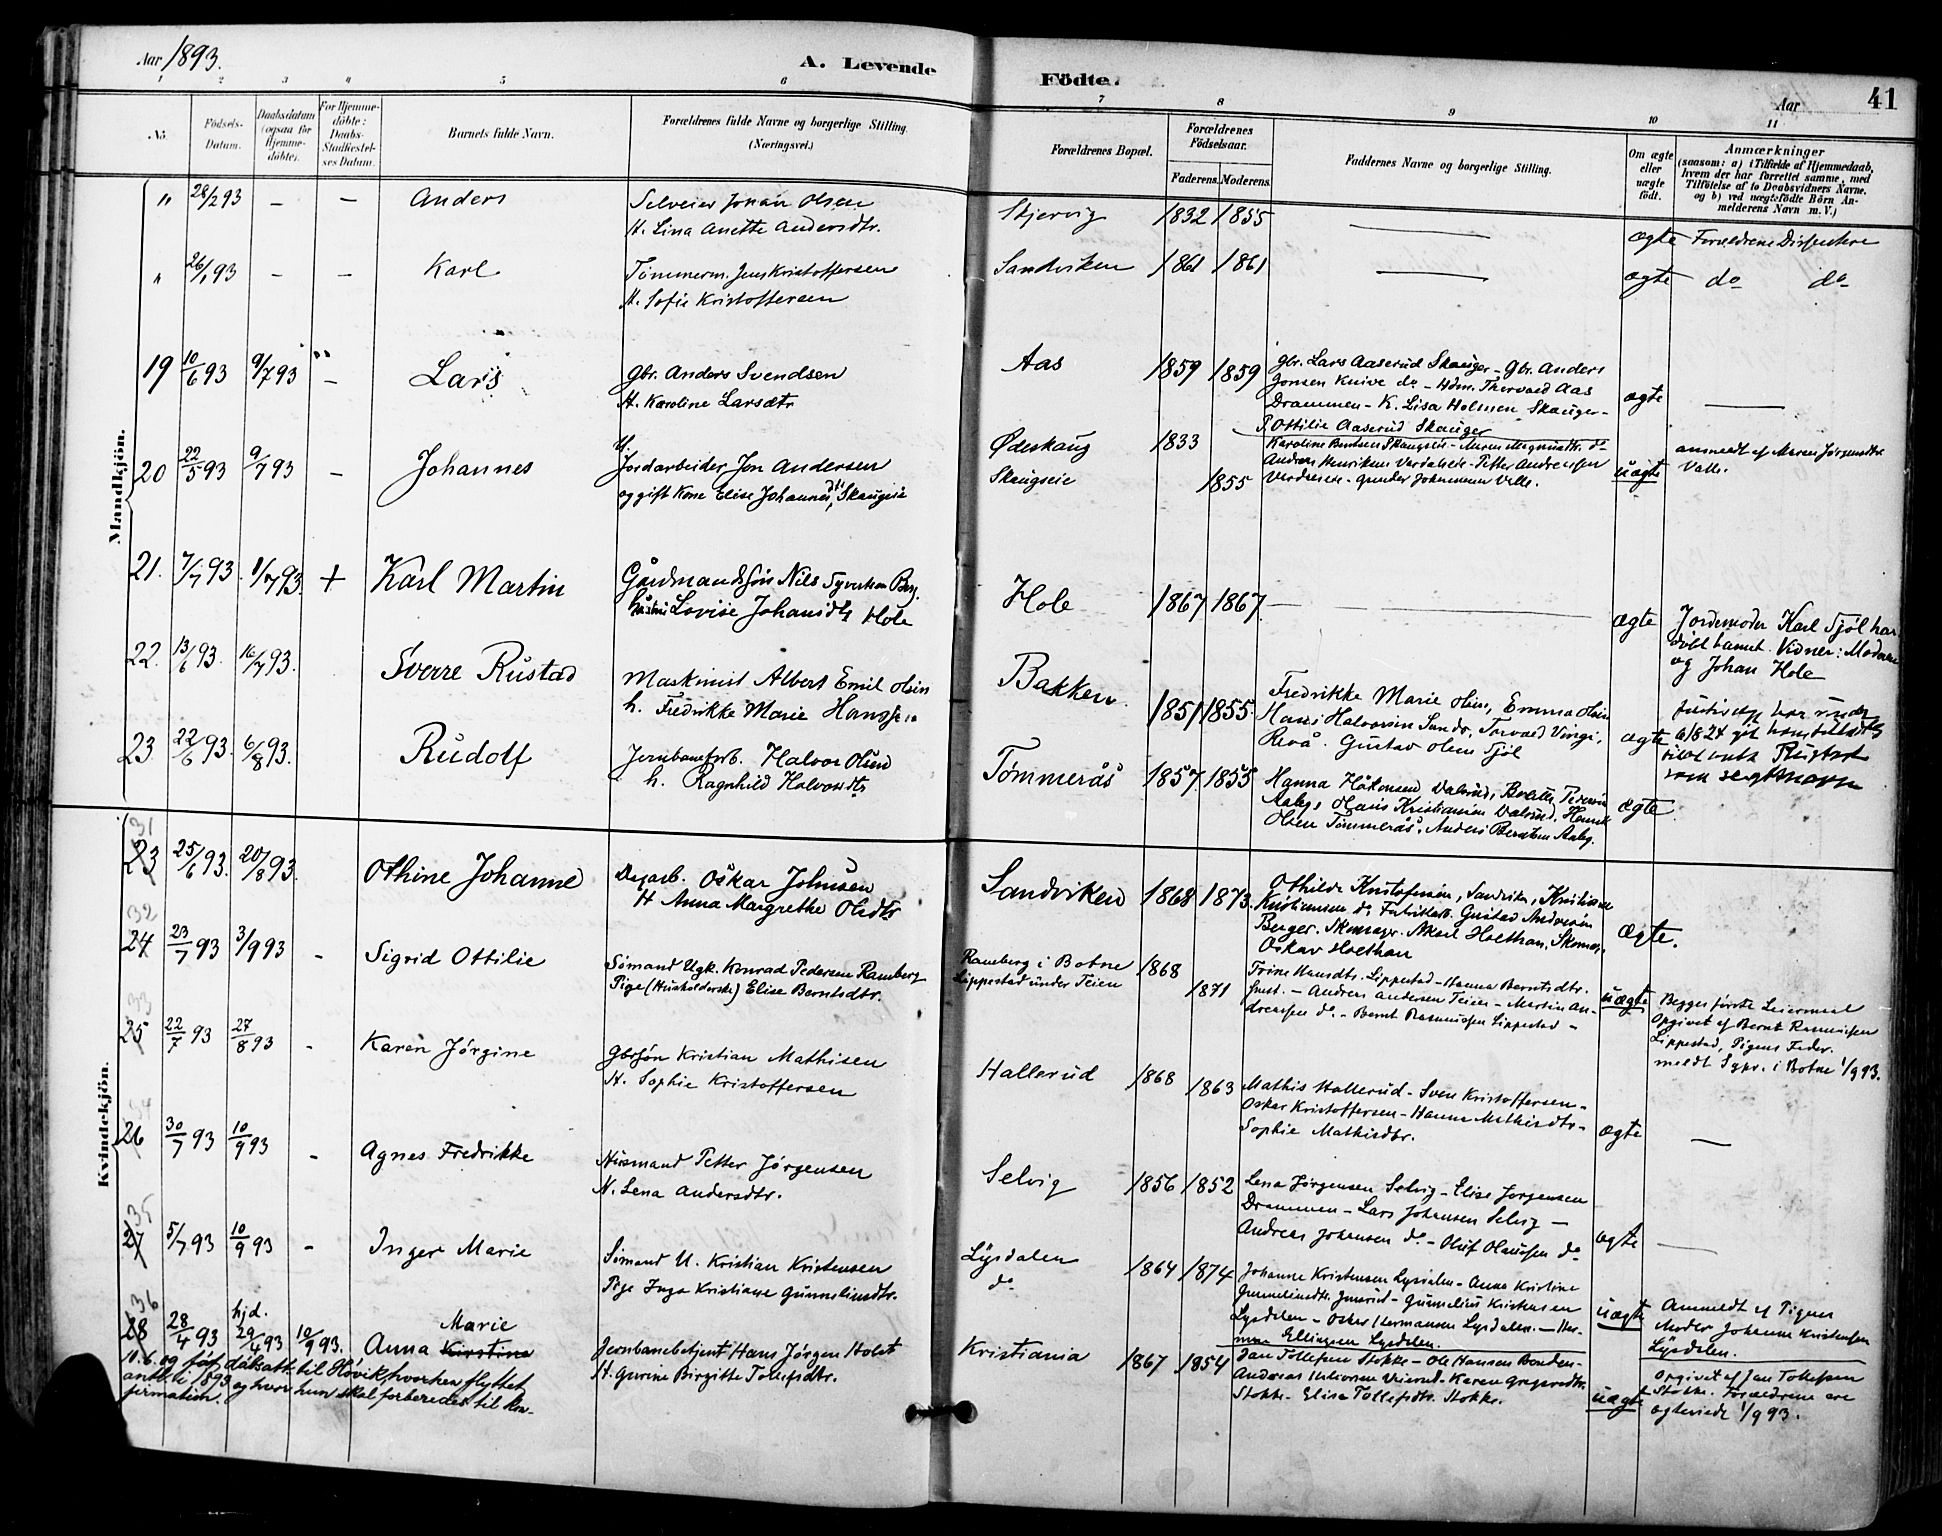 Aar 1893.
A. Levende
Födte.
Aar
41
1 2 3 4 5 6 7 8 9 10 11
No.
Födsels-Datum.
Daabsdatum (ogsaa for Hjemme-döbte).
For Hjemme-döbte: Daabs-Stadfæstel-ses Datum.
Barnets fulde Navn.
Forældrenes fulde Navne og borgerlige Stilling. (Næringsvei.)
Forældrenes Bopæl.
Forældrenes Födselsaar.
Faderens. Moderens.
Faddernes Navne og borgerlige Stilling.
Om ægte eller uægte födt.
Anmærkninger
(saasom: a) i Tilfælde af Hjemmedaab,
hvem der har forrettet samme, med
Tilföielse af to Daabsvidners Navne.
og b) ved uægtefödte Börn An-
melderens Navn m. V.)
Mandkjön.
" 28/2 93 – – Anders
Selveier Johan Olsen
H. Lina Anette Andersdtr.
Skjervig 1832 1855 — ægte Forældrene Dissentere
" 26/1 93 – – Karl
Tømmerm. Jens Kristoffersen
H. Sofie Kristoffersen
Sandviken 1861 1861 — ægte do do
19 10/6 93 9/7 93 – Lars
Gbr. Anders Svendsen
H. Karoline Larsdtr
Aas 1859 1859
Gbr. Lars Aaserud Skauger – Gbr. Anders
Jonsen Knive do – Hdm. Thorvald Aas
Drammen – K. Lisa Holmen Skauger –
P. Ottilie Aaserud Skauger
ægte —
20 22/5 93 9/7 93 – Johannes
U. Jordarbeider Jon Andersen
og gift Kone Elise Johannesdtr, Skaugeie
Ødeskaug 1833
Skaugseie 1855
Karoline Berntsen Skaugseie – Maren Magnusdtr. do
Andreas Henriksen Verdaleie – Petter Andreassen
Verdaleie – Gunder Johannesen Valle.
uægte
anmeldt af Maren Jørgensdtr.
Valle.
21. 7/7 93 8/7 93. + Karl Martin
Gårdmandssøn Nils Syvertsen Berg.
hustru Lovise Johansdtr Hole
Hole 1867 1867. — ægte
Jordemoder Karl Sjöl har
døbt barnet. Vidner: Moderen
og Johan Hole
22. 13/6 93. 16/7 93. Sverre Rustad
Maskinist Albert Emil Olsen
h. Fredrikke Marie Hanssen
Bakken. 1851 1855.
Fredrikke Marie Olsen, Emma Olsen
Hans Halvorsen Sando, Torvald Vinge,
Revå. Gustav Olsen Sjöl
ægte
23. 22/6 93. 6/8 93. Rudolf
Jernbanearb. Halvor Olsen
h. Ragnhild Halvorsdtr
Tömmerås 1857 1855
Hanna Håkonsen Valsrud,
Hans Kristiansen Valsrud, Henrik
Olsen Tömmerås, Anders Berntsen Aaby.
ægte.
Kvindekjön.
31
23 25/6 93. 20/8 93. Othine Johanne
Dagarb. Oskar Johnsen
H Anna Margrethe Olsdtr
Sandviken 1868 1873.
Othilde Kristofersen, Sandviken, Kristiane
Kristiansen do Gustav Andersen
Berger. Skomager. Mikael Holthan, Skomag.
Oskar Holthan
ægte.
32
24 23/7 93 3/9 93 – Sigrid Ottilie
Sömand Ugk. Konrad Pedersen Ramberg
Pige (Husholderske) Elise Berntsdtr.
Ramberg i Botne 1868
Lippestad under Teien 1871
Trine Hansdtr. Lippestad – Hanna Berntsdtr.
Gust. – Andreas Andersen Teien – Martin An-
dreassen do – Bernt Rasmussen Lippestad –
uægte
Begges første Leiermaal
Opgivet af Bernt Rasmussen
Lippestad, Pigens Fader.
meldt Sgpr. i Botne 1/9 93.
33
25 22/7 93 27/8 93 – Karen Jörgine
Gbrsøn Kristian Mathisen
H. Sophie Kristoffersen
Hallerud 1868 1863
Mathis Hallerud – Sven Kristoffersen –
Oskar Kristoffersen – Hanna Mathisdtr –
Sophie Mathisdtr.
ægte —
26 30/7 93 10/9 93 – Agnes Fredrikke
Husmand Petter Jørgensen
H. Lena Andersdtr.
Selvig 1856 1852
Lena Jørgensen Selvig – Elise Jorgensen
Drammen – Lars Johansen Selvig –
Andreas Johansen do – Oluf Olaussen do
ægte —
35
27 5/7 93 10/9 93 – Inger Marie
Sömand U. Kristian Kristensen
Pige Inga Kristiane Gunneliusdtr.
Lysdalen 1864 1874
do
Johanne Kristensen Lysdalen – Anna Kristine
Gunneliusdtr. – Gunnelius Kristensen
Lysdalen – Oskar Hermansen Lysdalen – Her-
man Ellingsen Lysdalen.
uægte
Anmeldt af Pigens
Moder Johanne Kristensen
Lysdalen.
36
28 28/4 93 hjd. 29/4 93 10/9 93. Anna Marie Kirstine
Jernbanebetjent Hans Jörgen Holst
H. Gurine Birgitte Tollefsdtr.
Kristiania 1867 1854
Jan Tollefsen Stokke – Ole Hansen Banden –
Karen Gregersdtr.
Stokke – Elise Tollefsdtr. Stokke.
uægte
opgivet af Jan Tollefsen
Stokke. Forældrene ere
ægteviede 1/9 93.
11.6.09 fåt dåbsatt. til Høvik, hvorhen flyttet
1893 og hvor hun skal forberedes til kon-
firmation.